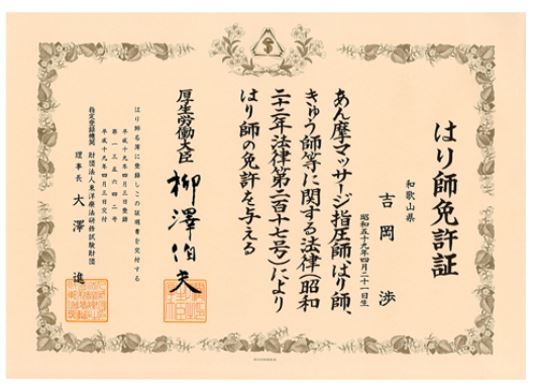 はり師免許証
和歌山県
吉岡 渉
昭和五十九年四月二十一日生
あん摩マッサージ指圧師、はり師、
きゅう師等に関する法律(昭和
二十二年法律第二百十七号)により
はり師の免許を与える
厚生労働大臣 柳澤伯夫
はり師名簿に登録しこの証明書を交付する
平成十九年四月三日登録
第一三五六四二号
平成十九年四月三日交付
指定登録機関 財団法人東洋療法研修試験財団
理事長 大澤 進